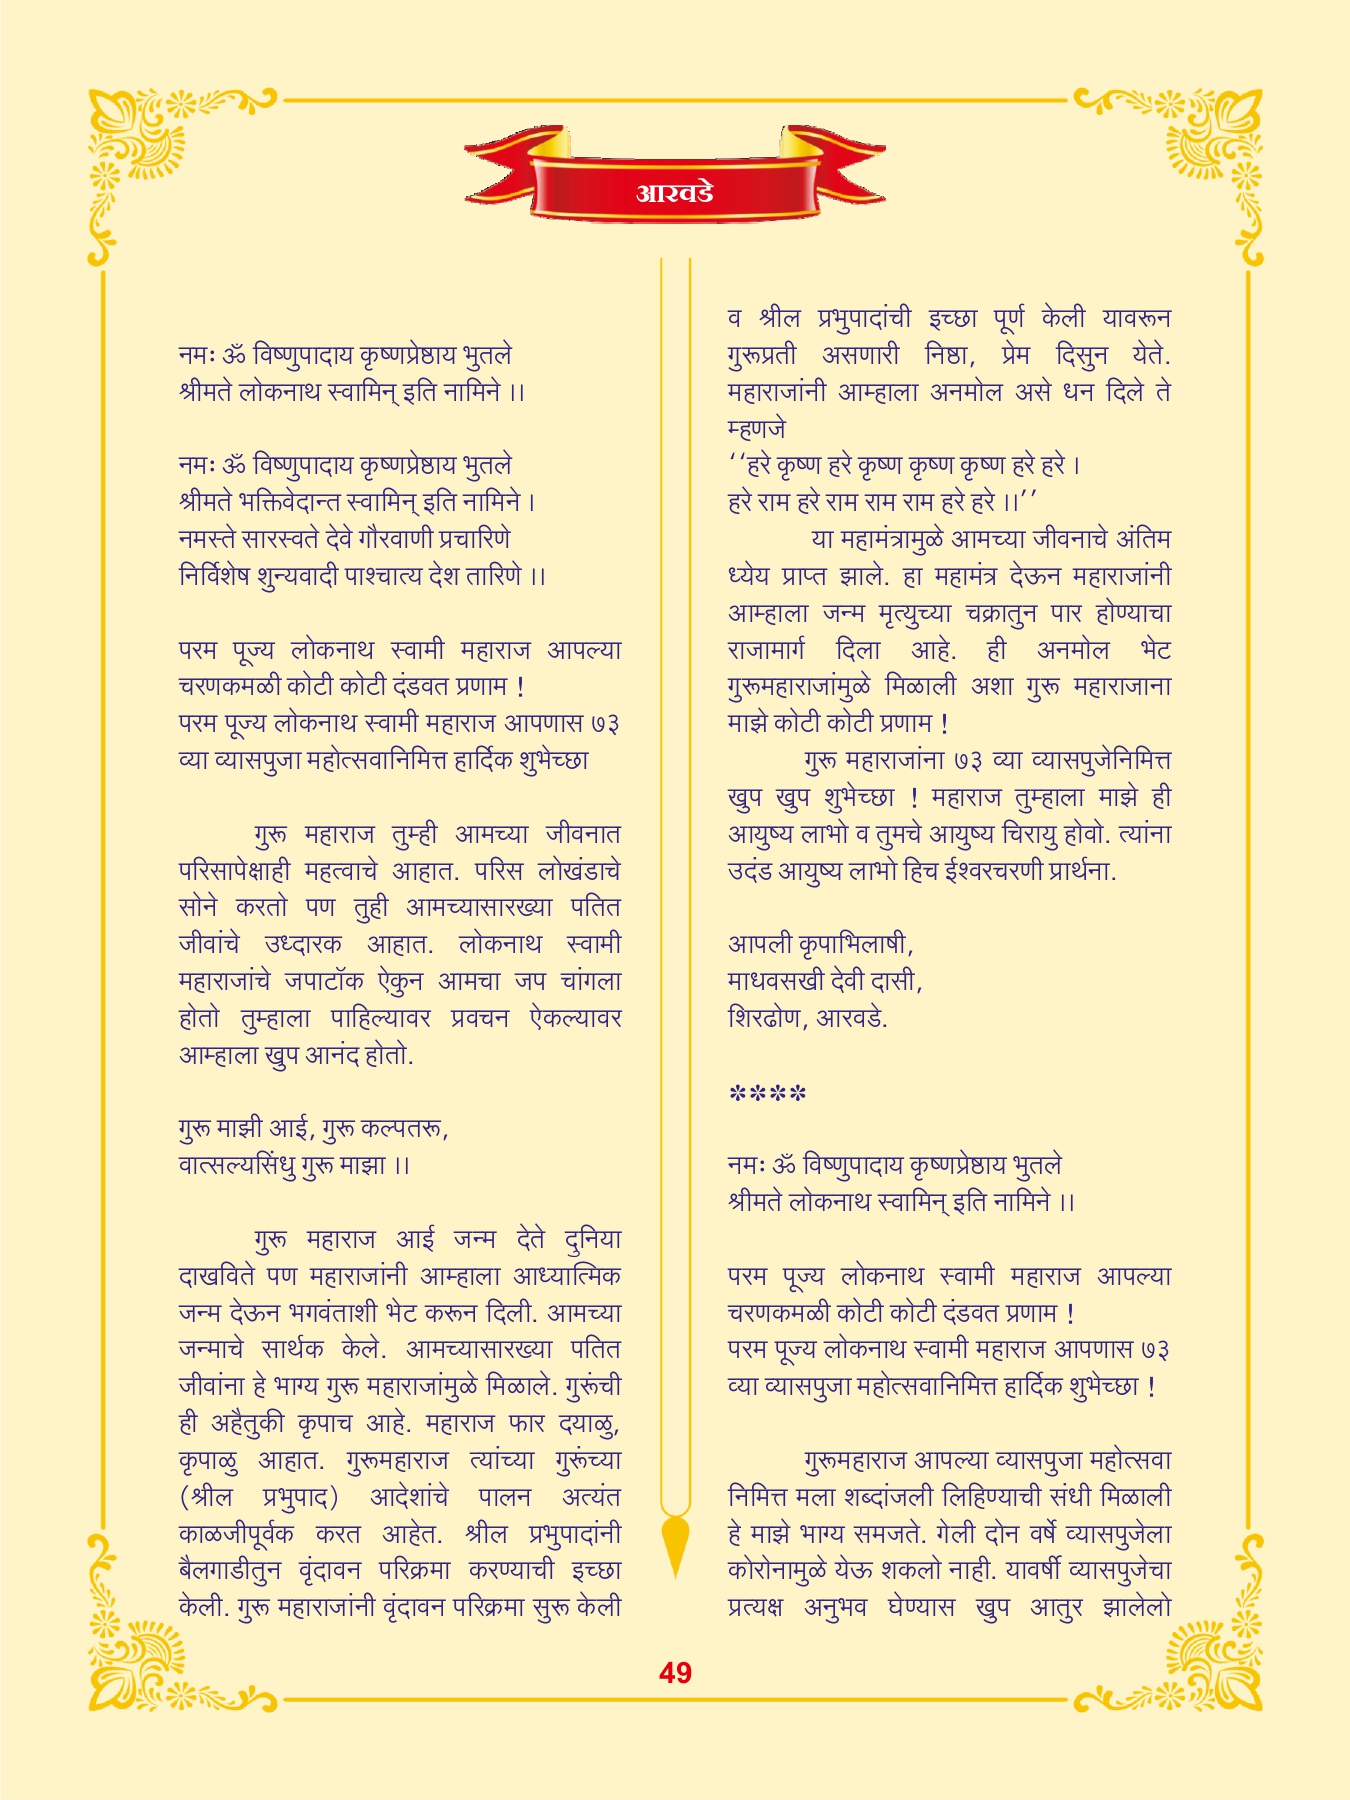 आरवडे
नमः ॐ विष्णुपादाय कृष्णप्रेष्ठाय भुतले
श्रीमते लोकनाथ स्वामिन् इति नामिने ।।
नमः ॐ विष्णुपादाय कृष्णप्रेष्ठाय भुतले
श्रीमते भक्तिवेदान्त स्वामिन् इति नामिने ।
नमस्ते सारस्वते देवे गौरवाणी प्रचारिणे
निर्विशेष शुन्यवादी पाश्चात्य देश तारिणे ।।
परम पूज्य लोकनाथ स्वामी महाराज आपल्या
चरणकमळी कोटी कोटी दंडवत प्रणाम !
परम पूज्य लोकनाथ स्वामी महाराज आपणास ७३
व्या व्यासपुजा महोत्सवानिमित्त हार्दिक शुभेच्छा
गुरू महाराज तुम्ही आमच्या जीवनात
परिसापेक्षाही महत्वाचे आहात. परिस लोखंडाचे
सोने करतो पण तुही आमच्यासारख्या पतित
जीवांचे उध्दारक आहात. लोकनाथ स्वामी
महाराजांचे जपाटॉक ऐकुन आमचा जप चांगला
होतो तुम्हाला पाहिल्यावर प्रवचन ऐकल्यावर
आम्हाला खुप आनंद होतो.
गुरू माझी आई, गुरू कल्पतरू,
वात्सल्यसिंधु गुरू माझा ।।
गुरू महाराज आई जन्म देते दुनिया
दाखविते पण महाराजांनी आम्हाला आध्यात्मिक
जन्म देऊन भगवंताशी भेट करून दिली. आमच्या
जन्माचे सार्थक केले. आमच्यासारख्या पतित
जीवांना हे भाग्य गुरू महाराजांमुळे मिळाले. गुरूंची
ही अहैतुकी कृपाच आहे. महाराज फार दयाळु,
कृपाळु आहात. गुरूमहाराज त्यांच्या गुरूंच्या
(श्रील प्रभुपाद) आदेशांचे पालन अत्यंत
काळजीपूर्वक करत आहेत. श्रील प्रभुपादांनी
बैलगाडीतुन वृंदावन परिक्रमा करण्याची इच्छा
केली. गुरू महाराजांनी वृंदावन परिक्रमा सुरू केली
व श्रील प्रभुपादांची इच्छा पूर्ण केली यावरून
गुरूप्रती असणारी निष्ठा, प्रेम दिसुन येते.
महाराजांनी आम्हाला अनमोल असे धन दिले ते
म्हणजे
‘‘हरे कृष्ण हरे कृष्ण कृष्ण कृष्ण हरे हरे ।
हरे राम हरे राम राम राम हरे हरे ।।’’
या महामंत्रामुळे आमच्या जीवनाचे अंतिम
ध्येय प्राप्त झाले. हा महामंत्र देऊन महाराजांनी
आम्हाला जन्म मृत्युच्या चक्रातुन पार होण्याचा
राजामार्ग दिला आहे. ही अनमोल भेट
गुरूमहाराजांमुळे मिळाली अशा गुरू महाराजाना
माझे कोटी कोटी प्रणाम !
गुरू महाराजांना ७३ व्या व्यासपुजेनिमित्त
खुप खुप शुभेच्छा ! महाराज तुम्हाला माझे ही
आयुष्य लाभो व तुमचे आयुष्य चिरायु होवो. त्यांना
उदंड आयुष्य लाभो हिच ईश्वरचरणी प्रार्थना.
आपली कृपाभिलाषी,
माधवसखी देवी दासी,
शिरढोण, आरवडे.
****
नमः ॐ विष्णुपादाय कृष्णप्रेष्ठाय भुतले
श्रीमते लोकनाथ स्वामिन् इति नामिने ।।
परम पूज्य लोकनाथ स्वामी महाराज आपल्या
चरणकमळी कोटी कोटी दंडवत प्रणाम !
परम पूज्य लोकनाथ स्वामी महाराज आपणास ७३
व्या व्यासपुजा महोत्सवानिमित्त हार्दिक शुभेच्छा !
गुरूमहाराज आपल्या व्यासपुजा महोत्सवा
निमित्त मला शब्दांजली लिहिण्याची संधी मिळाली
हे माझे भाग्य समजते. गेली दोन वर्षे व्यासपुजेला
कोरोनामुळे येऊ शकलो नाही. यावर्षी व्यासपुजेचा
प्रत्यक्ष अनुभव घेण्यास खुप आतुर झालेलो
49